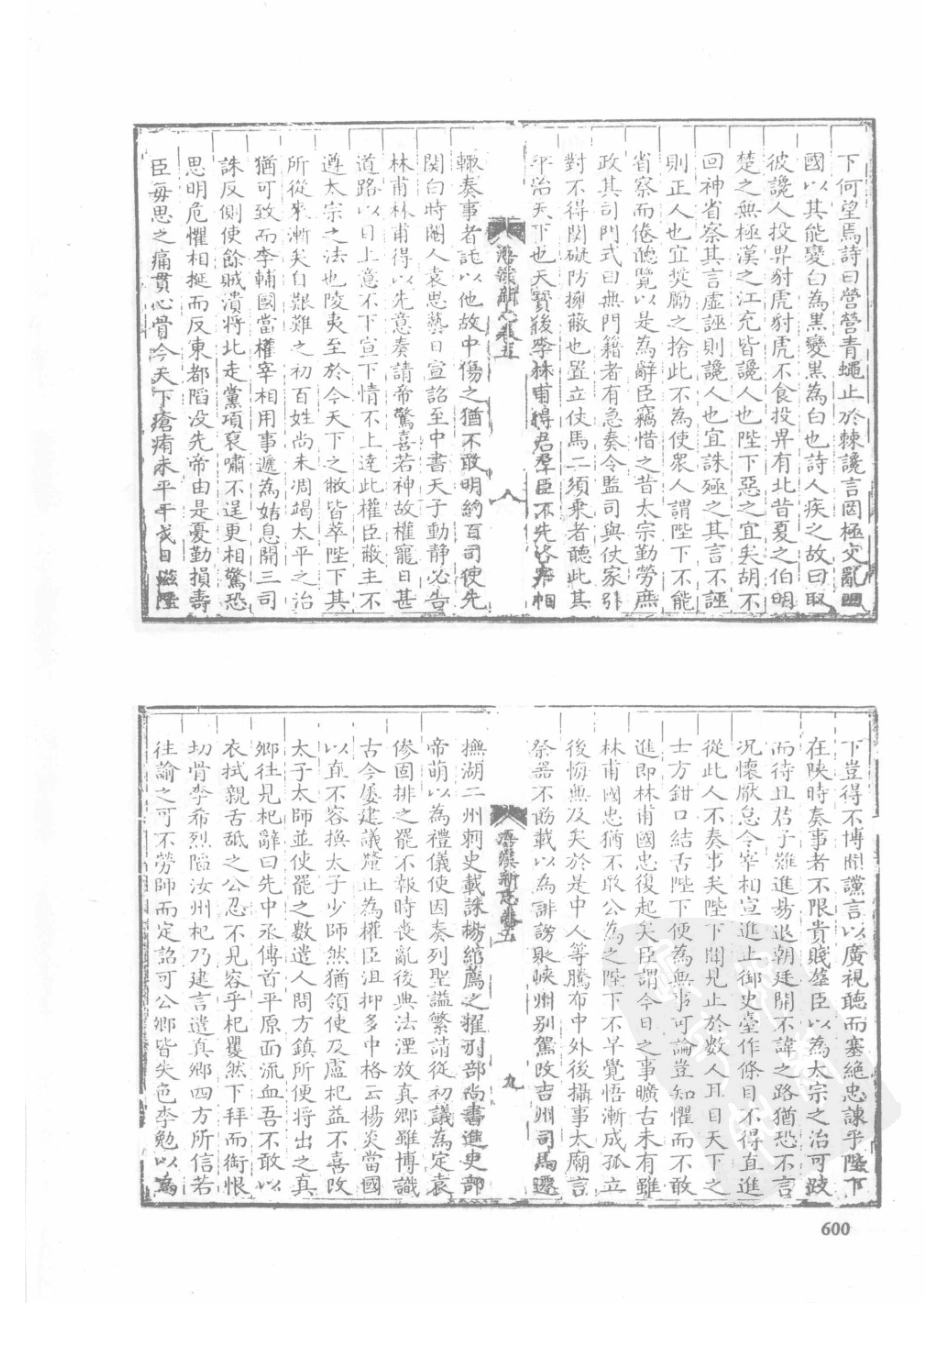 下何望焉詩曰營營青蠅止於棘讒言罔極交亂四
國以其能變白為黑變黑為白也詩人疾之故曰取
彼讒人投畀豺虎豺虎不食投畀有北昔夏之伯明
楚之無極漢之江充皆讒人也陛下惡之宜矣胡不
回神省察其言虛誣則讒人也宜誅殛之其言不誣
則正人也宜奬勵之捨此不為使衆人謂陛下不能
省察而倦聽覽以是為辭臣竊惜之昔太宗勤勞庶
政其司門式曰無門籍者有急奏令監司與仗家引
對不得関礙防擁蔽也置立仗馬二須乗者聽此其
平治天下也天寶後李林甫得君羣臣不先咨宰相
八
輙奏事者託以他故中傷之猶不敢明約百司使先
関白時閹人袁思藝日宣詔至中書天子動静必告
林甫林甫得以先意奏請帝驚喜若神故權寵日甚
道路以目上意不下宣下情不上逹此權臣蔽主不
遵太宗之法也陵夷至於今天下之敝皆萃陛下其
所從來漸矣自艱難之初百姓尚未凋竭太平之治
猶可致而李輔國當權宰相用事遞為姑息開三司
誅反側使餘賊潰將北走黨項裒嘯不逞更相驚恐
思明危懼相挻而反東都陷没先帝由是憂勤損壽
臣毎思之痛貫心骨今天下瘡痏未平干戈日滋陛
下豈得不博聞讜言以廣視聽而塞絶忠諫乎陛下
在陜時奏事者不限貴賤羣臣以為太宗之治可跂
而待且君子難進易退朝廷開不諱之路猶恐不言
况懷厭怠令宰相宣進止御史臺作條目不得直進
從此人不奏事矣陛下聞見止於數人耳目天下之
士方鉗口結舌陛下便為無事可論豈知懼而不敢
進即林甫國忠復起矣臣謂今日之事曠古未有雖
林甫國忠猶不敢公為之陛下不早覺悟漸成孤立
後悔無及矣於是中人等騰布中外後攝事太廟言
祭器不飭載以為誹謗貶峽州别駕改吉州司馬遷
九
撫湖二州刺史載誅楊綰薦之擢刑部尚書進吏部
帝萌以為禮儀使因奏列聖諡繁請從初議為定袁
傪固排之罷不報時喪亂後典法湮放真卿雖博識
古今屢建議釐正為權臣沮抑多中格云楊炎當國
以直不容換太子少師然猶領使及盧杞益不喜改
太子太師並使罷之數遣人問方鎮所便將出之真
卿往見杞辭曰先中丞傳首平原面流血吾不敢以
衣拭親舌舐之公忍不見容乎杞矍然下拜而銜恨
切骨李希烈陷汝州杞乃建言遣真卿四方所信若
往諭之可不勞師而定詔可公卿皆失色李勉以為
600